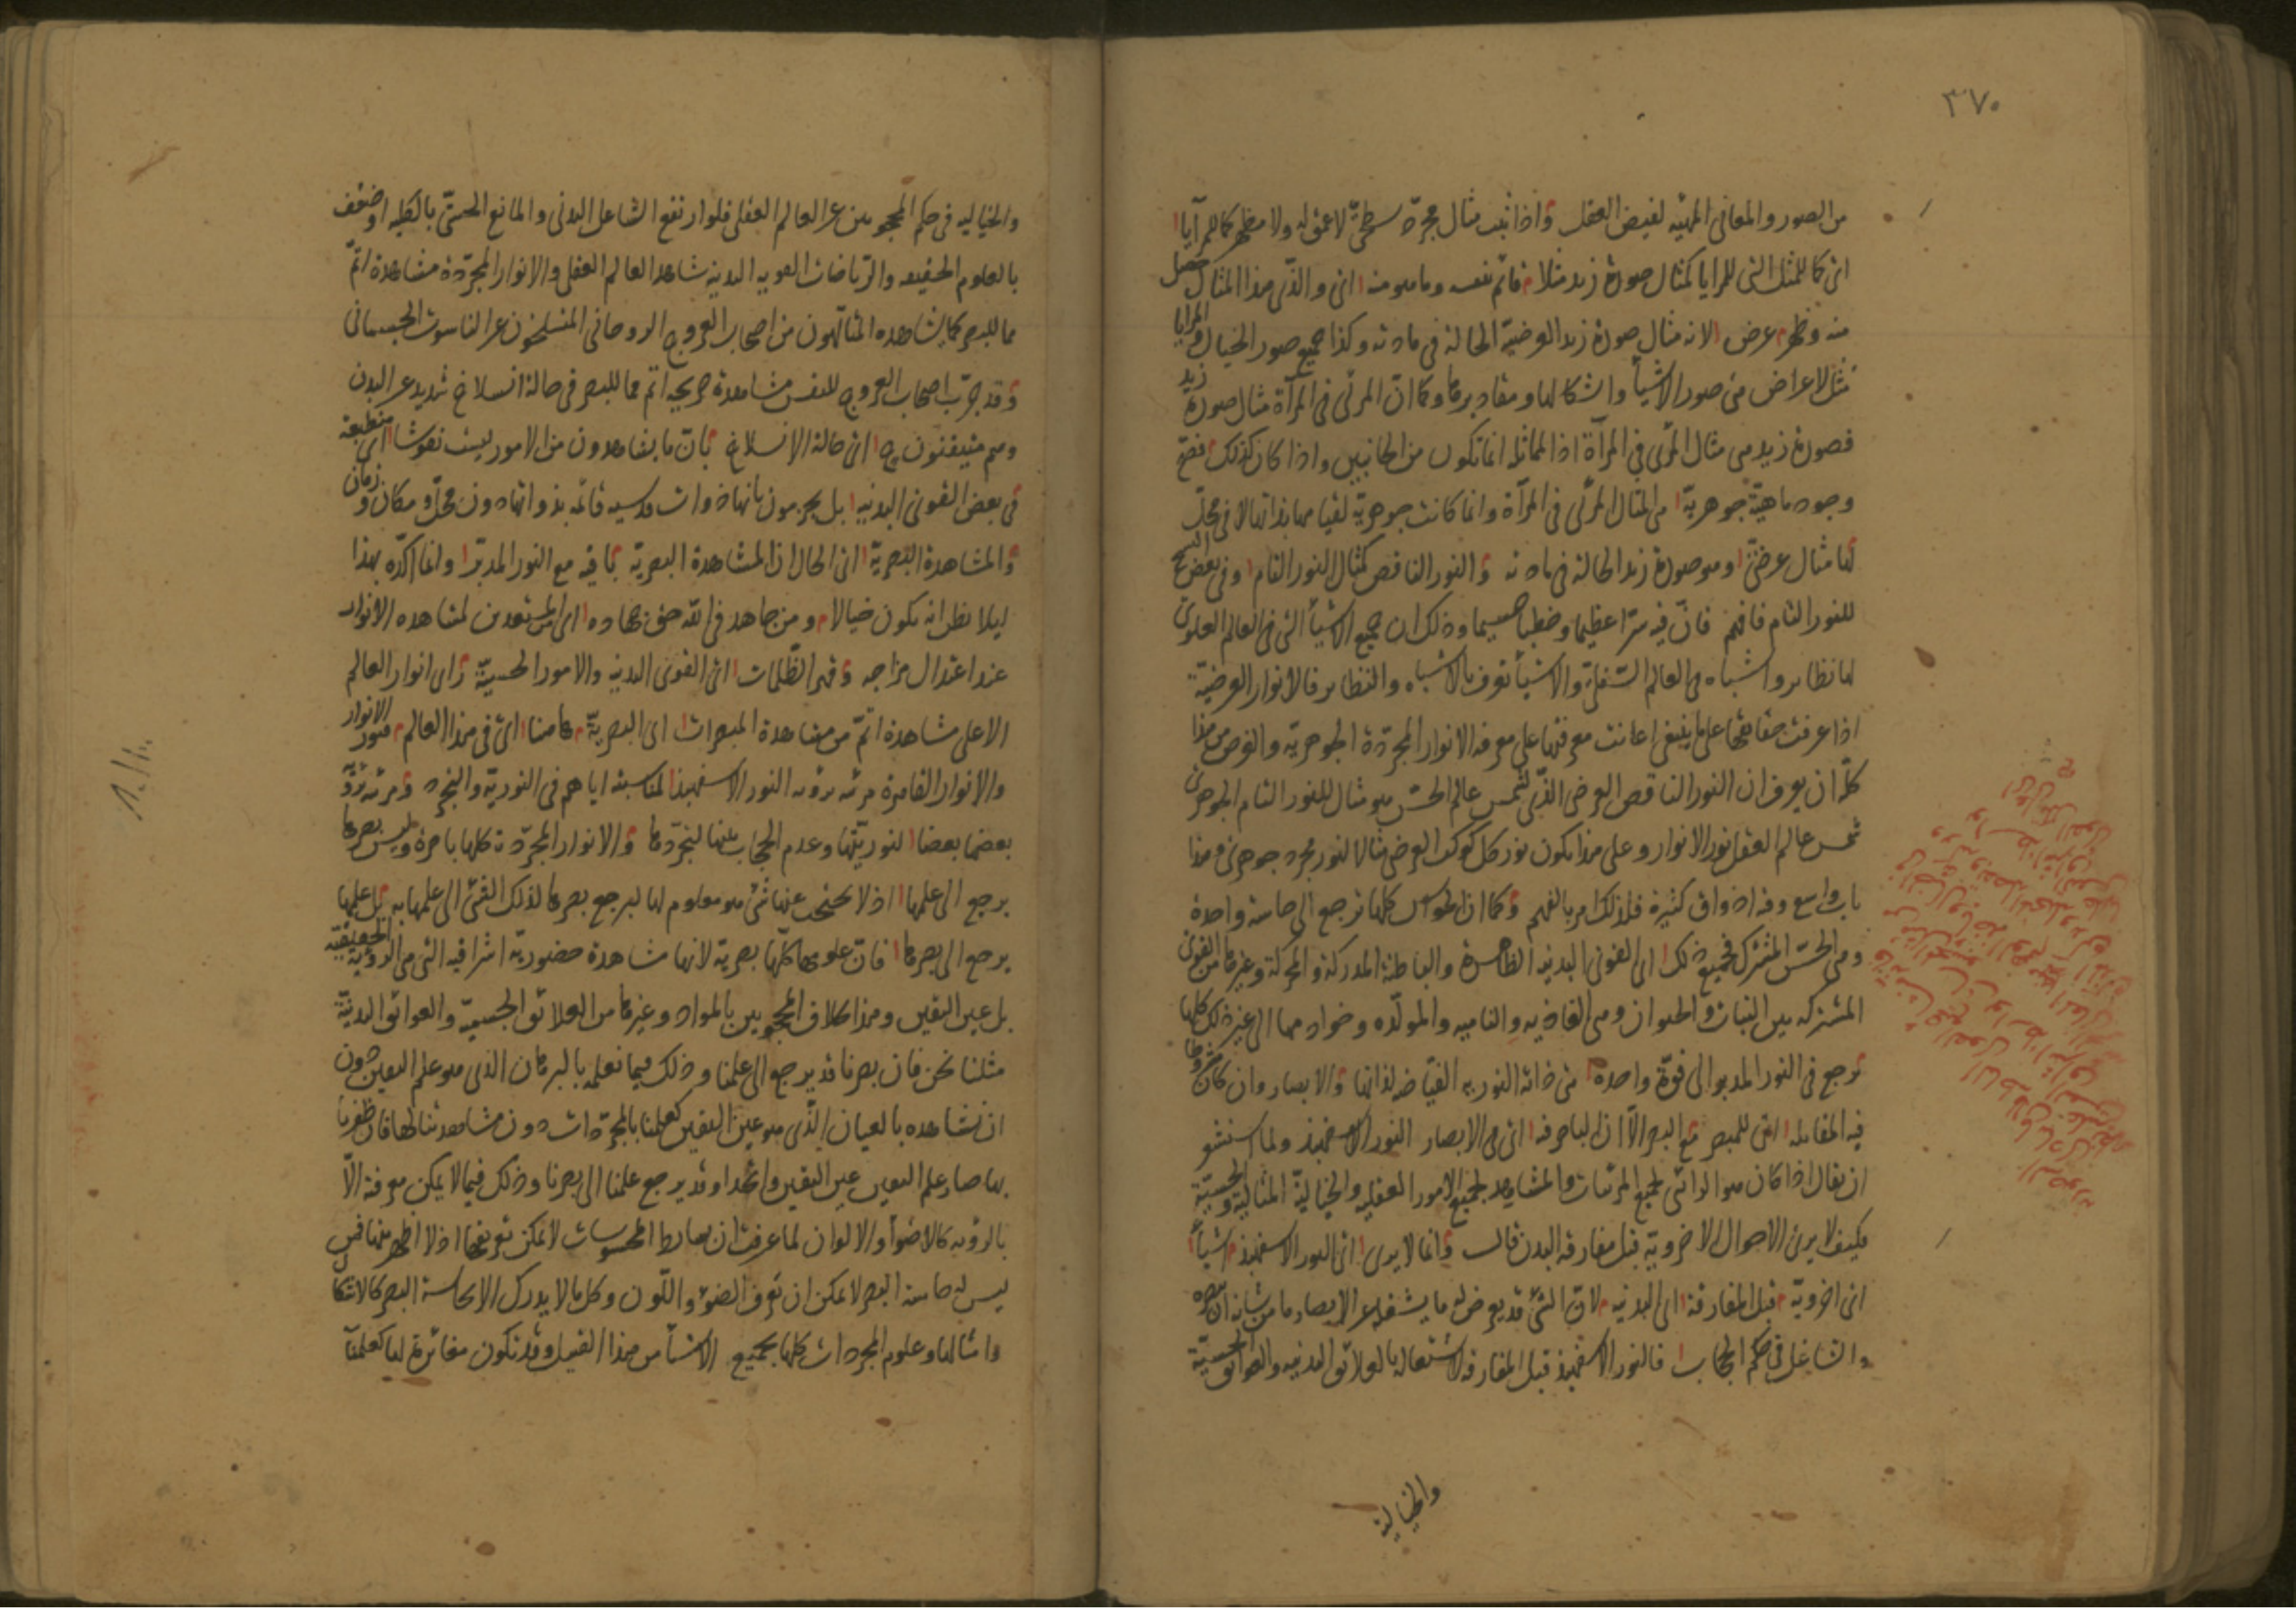 ٣٧٠
من الصور والمعاني المهيئه لفيض العقل واذا ثبت مثال مجرد سطحي لا عمق له ولا مظهر كالمرآيا
اى كالمثل التى للمرايا كمثال صورة زيد مثلا قائم بنفسه وما هو منه اى والذى هذا المثال حصل
منه وظهر عرض لانه مثال صورة زيد العرضية الحالة فى مادته وكذا جميع صور الخيال والمرايا
مثل لاعراض من صور الاشيأ واشكالها ومقاديرها وكما ان المرئى فى المرآة مثال صورة زيد
فصورة زيد هى مثال المرئى فى المرآة اذ المماثلة انما تكون من الجانبين واذا كان كذلك فصح
وجود ماهية جوهرية هى المثال المرئى فى المرآة وانما كانت جوهرية لقيامها بذاتها لا فى محل
لها مثال عرضى وهو صورة زيد الحالة فى مادته والنور الناقص كمثال النور التام وفى بعض النسخ
للنور التام فافهم فان فيه سرا عظيما وخطبا جسيما وذلك ان جميع الاشيأ التى فى العالم العلوى
لها نظاير واشباه فى العالم السفلى والاشيأ تعرف بالاشباه والنظاير فالانوار العرضية
اذا عرفت حقائقها على ما ينبغى اعانت معرفتها على معرفة الانوار المجردة الجوهرية والغرض من هذا
كله ان يعرف ان النور الناقص العرضى الذى لشمس عالم الحس هو مثال للنور التام الجوهرى
شمس عالم العقل نور الانوار وعلى هذا يكون نور كل كوكب العرضى مثالا لنور مجرد جوهرى وهذا
باب واسع وفيه اذواق كثيرة فلذلك امر بالفهم وكما ان الحواس كلها ترجع الى حاسة واحدة
وهى الحس المشترك فجميع ذلك اى القوى البدنيه الظاهرة والباطنة المدركة والمحركة وغيرها من القوى
المشتركه بين النبات والحيوان وهى الغاذيه والناميه والمولده وخوادمها الى غير ذلك كلها
ترجع فى النور المدبر الى قوة واحدة هى ذاته النوريه الفياضه لذاتها والابصار وان كان مشروطا
فيه المقابله اى للمبصر مع البصر الا ان الباصر فيه اى فى الابصار النور الاسفهبذ ولما استشعر
ان يقال اذا كان هو الرائى لجميع المرئيات والمشاهد لجميع الامور العقليه والخيالية المثالية والحسية
فكيف لا يرى الاحوال الاخروية قبل مفارقه البدن قال وانما لا يرى اى النور الاسفهبذ اشيأ
اى اخروية قبل المفارقة اى البدنيه لان الشئ قد يعرض له ما يشغله عن الابصار ما من شانه ان يبصره
والشاغل فى حكم الحجاب فالنور الاسفهبذ قبل المفارقه لاشتغاله بالعلائق البدنيه والعوائق الحسية
والخيالية
والخياليه فى حكم المحجوبين عن العالم العقلى فلو ارتفع الشاغل البدنى والمانع الحسى بالكليه او ضعف
بالعلوم الحقيقيه والرياضات القويه البدنيه شاهد العالم العقلى والانوار المجردة مشاهدة اتم
مما للبصر كما يشاهده المتالهون من اصحاب العروج الروحانى المنسلخون عن الناسوت الجسمانى
وقد جرب اصحاب العروج للنفس مشاهدة صريحه اتم مما للبصر فى حالة انسلاخ شديد عن البدن
وهم متيقنون ح اى حالة الانسلاخ بان ما يشاهدون من الامور ليست نقوشا اى منطبعة
فى بعض القوى البدنيه بل يجزمون بانها ذوات قدسيه قائمه بذواتها دون محل ومكان وزمان
والمشاهدة البصرية اى الحال ان المشاهدة البصرية باقيه مع النور المدبر وانما اكده بهذا
ليلا يظن انه يكون خيالا ومن جاهد فى الله حق جهاده اى المستعدين لمشاهده الانوار
عند اعتدال مزاجه وقهر الظلمات اى القوى البدنيه والامور الحسية راى انوار العالم
الاعلى مشاهدة اتم من مشاهدة المبصرات اى البصرية هاهنا اى فى هذا العالم فنور الانوار
والانوار القاهرة مرئيه برؤيه النور الاسفهبذ لمناسبته اياهم فى النورية والتجرد ومرئيه برؤيه
بعضها بعضا لنوريتها وعدم الحجاب بينها لتجردها والانوار المجردة كلها باصرة وليس بصرها
يرجع الى علمها اذ لا يحتجب عنها شئ هو معلوم لها ليرجع بصرها لذلك الشئ الى علمها به بل علمها
يرجع الى بصرها فان علومها كلها بصرية لانها مشاهدة حضورية اشراقيه التى هى الرؤية الحقيقية
بل عين اليقين وهذا بخلاف المحجوبين بالمواد وغيرها من العلائق الجسميه والعوائق البدنية
مثلنا نحن فان بصرنا قد يرجع الى علمنا وذلك فيما نعلمه بالبرهان الذى هو علم اليقين دون
ان نشاهده بالعيان الذى هو عين اليقين كعلمنا بالمجردات دون مشاهدتنا لها فان ظفرنا
بها صار علم اليقين عين اليقين واتحدا وقد يرجع علمنا الى بصرنا وذلك فيما لا يمكن معرفته الا
بالرؤيه كالاضوأ والالوان لما عرفت ان بسائط المحسوسات لا يمكن تعريفها اذ لا اظهر منها فمن
ليس له حاسة البصر لا يمكن ان تعرف الضوء واللون وكل ما لا يدرك الا بحاسة البصر كالاشكال
وامثالها وعلوم المجردات كلها بجميع الاشيأ من هذا القبيل وقد تكون مغائرة لها كعلمنا